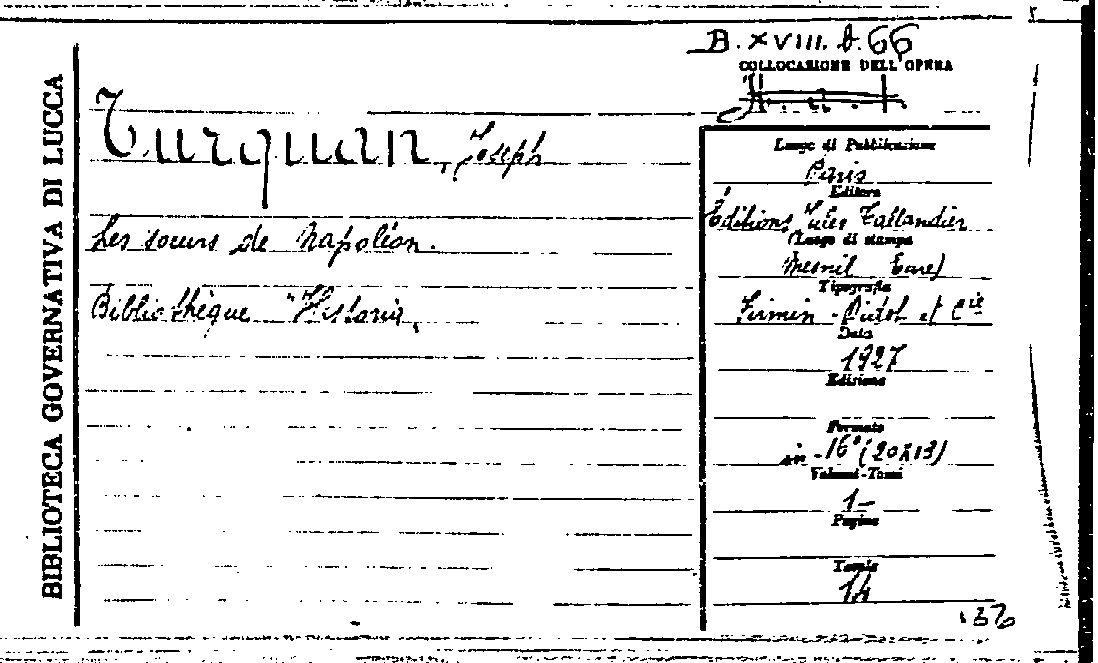 B. XVIII. d. 66
COLLOCAZIONE DELL'OPERA
BIBLIOTECA GOVERNATIVA DI LUCCA
Turquan, Joseph
Les soeurs de Napoléon.
Bibliothèque "Historia,
Luogo di Pubblicazione
Paris
Editore
Éditions Jules Tallandier
(Luogo di stampa
Mesnil Eure)
Tipografia
Firmin-Didot et Cie
Data
1927
Edizione
Formato
in-16° (20x13)
Volumi-Tomi
1-
Pagine
Tavole
14